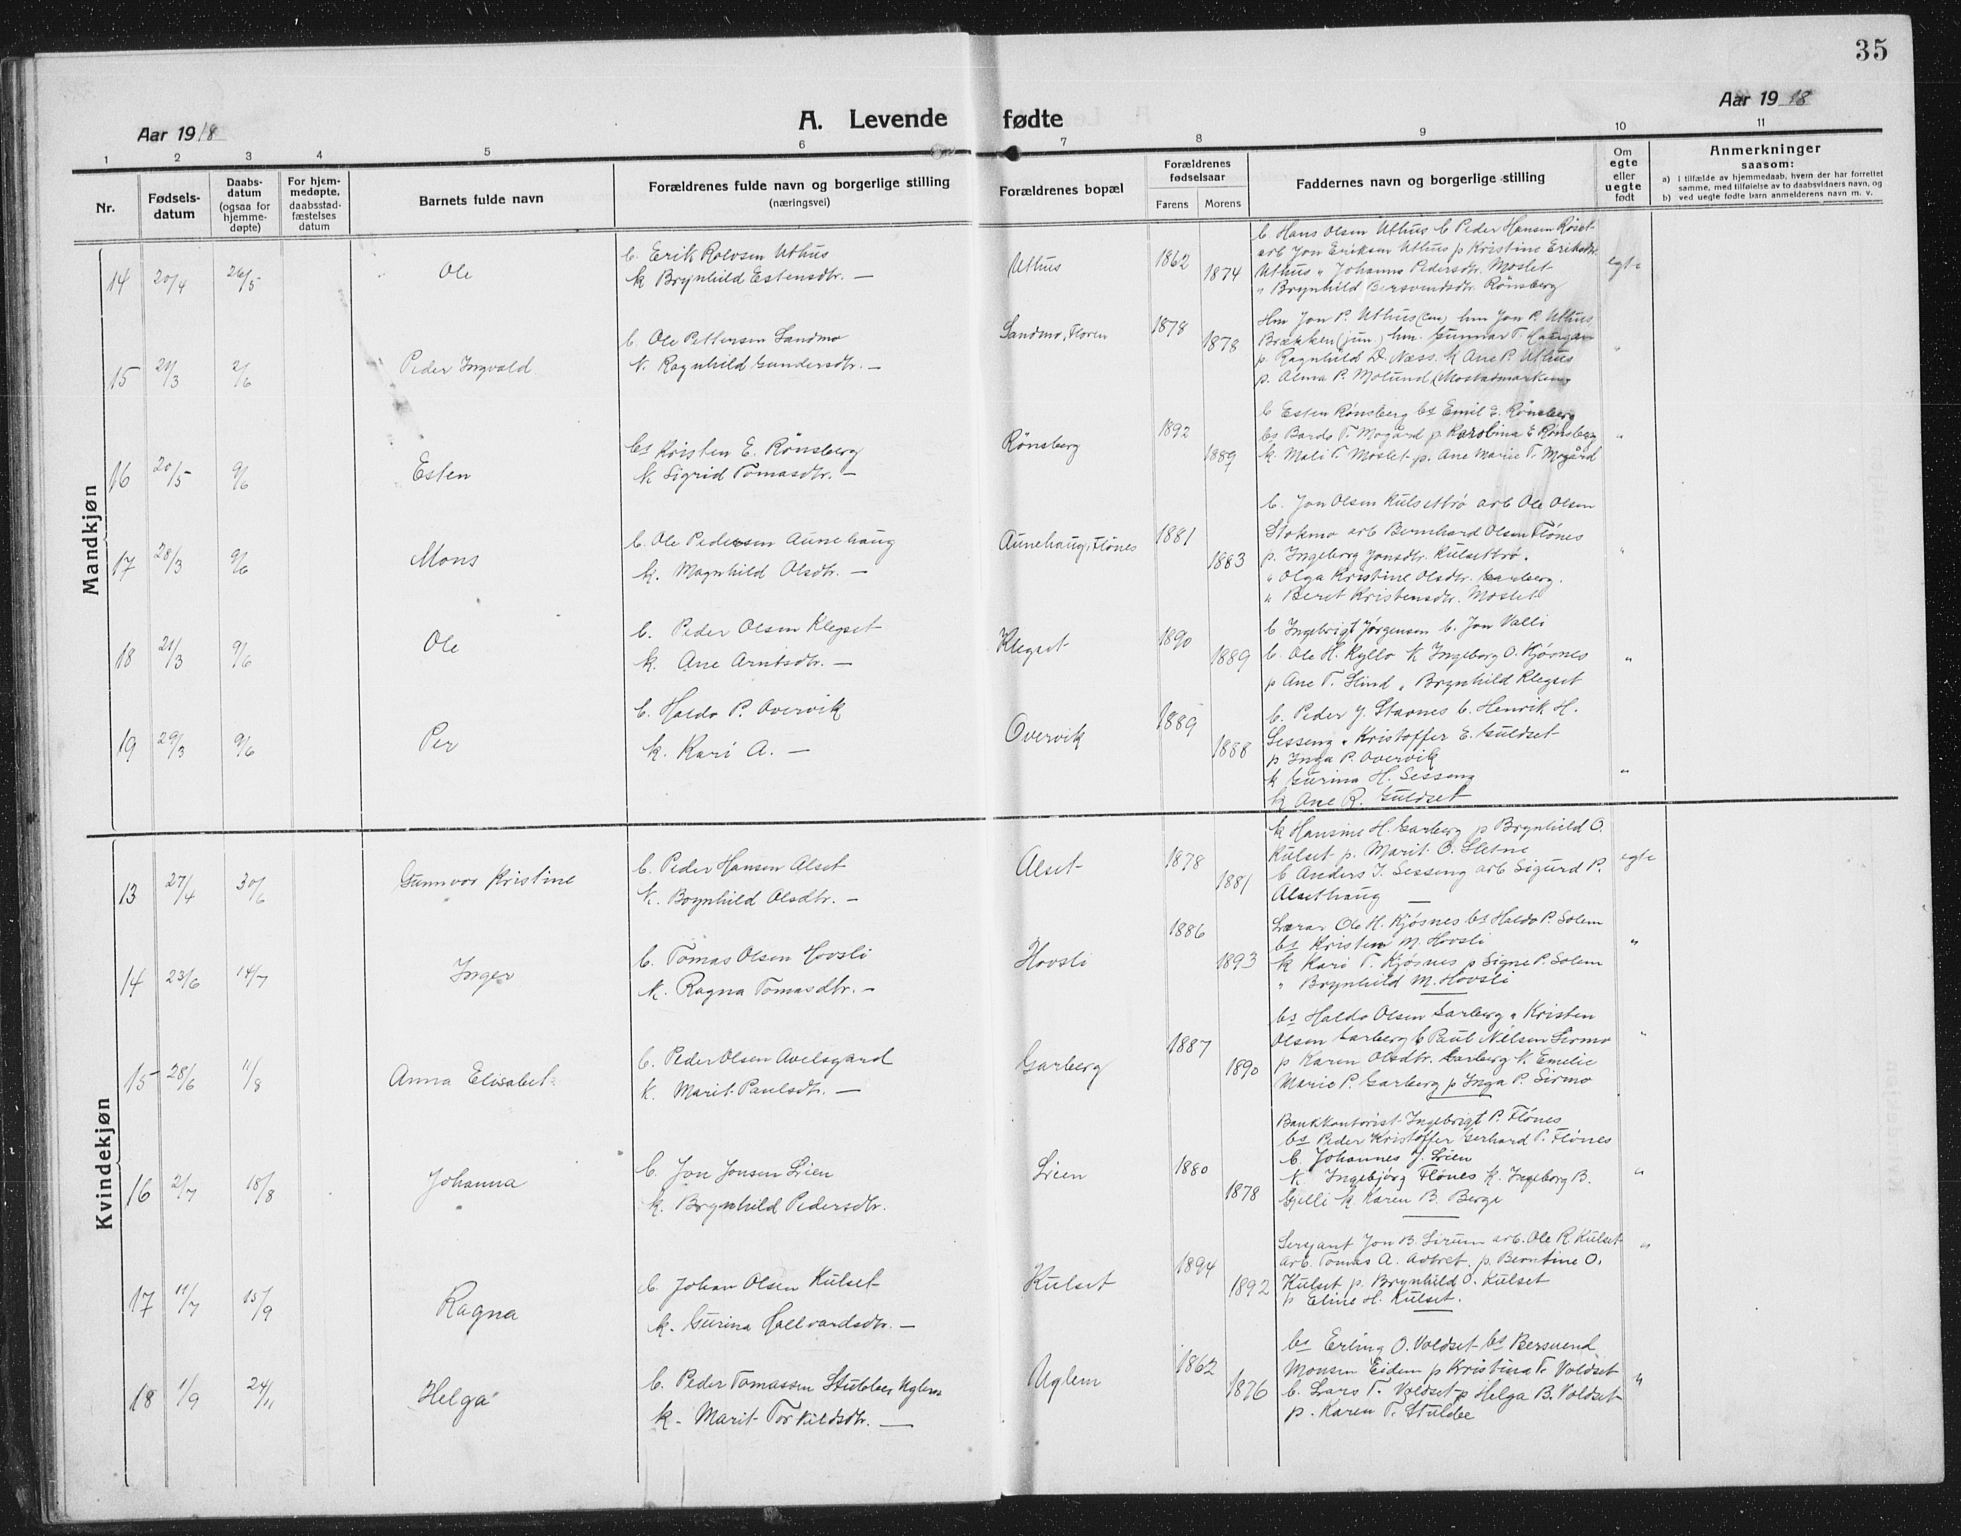 35
Aar 1918
A. Levende fødte
Aar 1918
1 2 3 4 5 6 7 8 9 10 11
Nr.
Fødsels-
datum
Daabs-
datum
(ogsaa for
hjemme-
døpte)
For hjem-
medøpte,
daabsstad-
fæstelses
datum
Barnets fulde navn
Forældrenes fulde navn og borgerlige stilling
(næringsvei)
Forældrenes bopæl
Forældrenes
fødselsaar
Farens Morens
Faddernes navn og borgerlige stilling
Om
egte
eller
uegte
født
Anmerkninger
saasom:
a) I tilfælde av hjemmedaab, hvem der har forrettet
samme, med tilføielse av to daabsvidners navn, og
b) ved uegte fødte barn anmelderens navn m. v.
Mandkjøn
14 20/4 26/5 Ole
b. Erik Rolvsen Uthus
k Brynhild Estensdtr. —
Uthus 1862 1874
b Hans Olsen Uthus b Peder Hansen Røset
arb Jon Eriksen Uthus p Kristine Eriksdtr.
Uthus " Johanna Pedersdtr. Moslet
" Brynhild Bersvendsdtr. Rønsberg
egte
15 21/3 2/6 Peder Ingvald
b. Ole Pettersen Sandmo
k. Ragnhild Gundersdtr. —
Sandmo, Floren 1878 1878
Hm Jon P. Uthus (sen) hm Jon P. Uthus
Brækken (jun) hm. Gunnar T. Haugan
p. Ragnhild D. Næss. k Ane P. Uthus
p. Alma P. Molund (Mostadmarken)
"
16 20/5 9/6 Esten
bs Kristen E. Rønsberg
k Sigrid Tomasdtr. —
Rønsberg 1892 1889
b Esten Rønsberg bs Emil E. Rønsberg
bs Bardo T. Mogård p Karolina E Rønsberg
k. Mali T. Moslet p. Ane Marie T. Mogård
"
17 28/3 9/6 Mons
b. Ole Pedersen Aunehaug
k. Magnhild Olsdtr. —
Aunehaug, Flønes 1881 1883
b. Jon Olsen Kulsettrø arb Ole Olsen
Stokmo arb Bernhard Olsen Flønes
p. Ingeborg Jonsdtr. Kulsettrø.
" Olga Kristine Olsdtr. Garberg.
" Beret Kristensdtr. Moslet
"
18 21/3 9/6 Ole
b. Peder Olsen Klegset
k. Ane Arntsdtr. —
Klegset 1890 1889
b Ingebrigt Jørgensen b. Jon Valli
b. Ole H. Kyllo k Ingeborg O. Kjøsnes
p Ane T. Slind " Brynhild Klegset
"
19 29/3 9/6 Per
b. Haldo P. Overvik
k. Kari A. —
Overvik 1889 1888
b. Peder J. Stavnes b. Henrik H.
Sesseng " Kristoffer E. Guldset
p Inga P. Overvik
k Gurina H. Sesseng
k Ane R. Guldset
"
Kvindekjøn
13 27/4 30/6 Gunnvor Kristine
b. Peder Hansen Alset
k. Brynhild Olsdtr. —
Alset 1878 1881
k Hansine H. Garberg p Brynhild O.
Kulset p. Marit O. Sletne
b Anders J. Sesseng arb Sigurd P.
Alsethaug —
egte
14 23/6 14/7 Inger
b. Tomas Olsen Hovsli
k. Ragna Tomasdtr. —
Hovsli 1886 1893
Lærar Ole H. Kjøsnes bs Haldo P. Solem
bs Kristen M. Hovsli
k Kari T. Kjøsnes p Signe P. Solem
" Brynhild M. Hovsli
"
15 28/6 11/8 Anna Elisabet
b. Peder Olsen Avelsgard
k. Marit Paulsdtr. —
Garberg 1887 1890
bs Haldo Olsen Garberg " Kristen
Olsen Garberg b Paul Nilsen Sirmo
p Karen Olsdtr. Garberg k. Emelie
Marie P. Garberg p Inga P. Sirmo
"
16 2/7 18/8 Johanna
b. Jon Jonsen Lien
k. Brynhild Pedersdtr.
Lien 1880 1878
Bankkontorist Ingebrigt P. Flønes
bs Peder Kristoffer Gerhard P. Flønes
b. Johannes J. Lien
k. Ingebjørg Flønes k. Ingeborg B.
Gjelli k Karen B. Berge
"
17 11/7 15/9 Ragna
b. Johan Olsen Kulset
k. Gurina Hallvardsdtr. —
Kulset 1894 1892
Sersjant Jon B. Sirum arb. Ole R. Kulset
arb. Tomas A. Autret. p. Berntine O.
Kulset p. Brynhild O. Kulset
p Eline H. Kulset.
"
18 1/9 24/11 Helga
b. Peder Tomassen Stubbes Uglem
k. Marit Torkildsdtr. —
Uglem 1862 1876
bs Erling O. Voldset bs Bersvend
Monsen Eidem p Kristina T. Voldset
b. Lars T. Voldset p Helga B. Voldset
p. Karen T. Stubbe
"